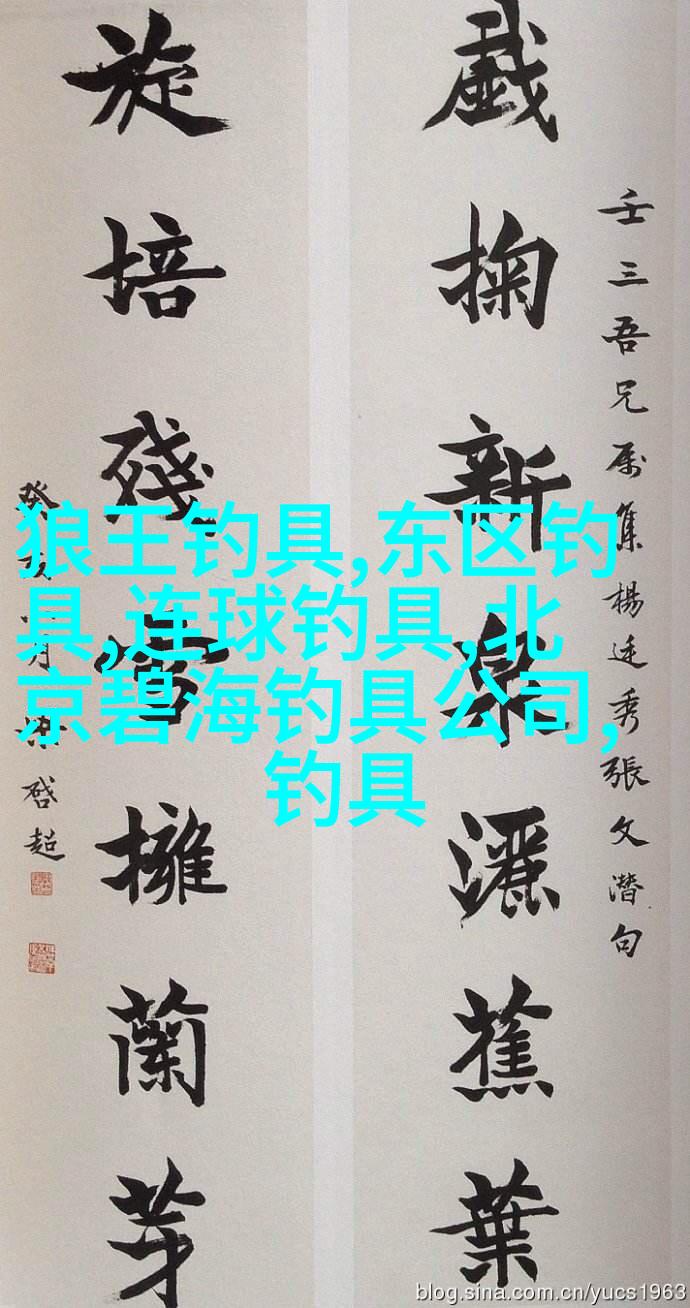 壬三吾兄属集楊廷秀張文潛句
戲掬新泉灑蕉葉
旋培殘雪擁蘭芽
癸亥月梁啓超
狼王钓具,东区钓
具,连球钓具,北
京碧海钓具公司,
钓具
blog.sina.com.cn/yucs1963